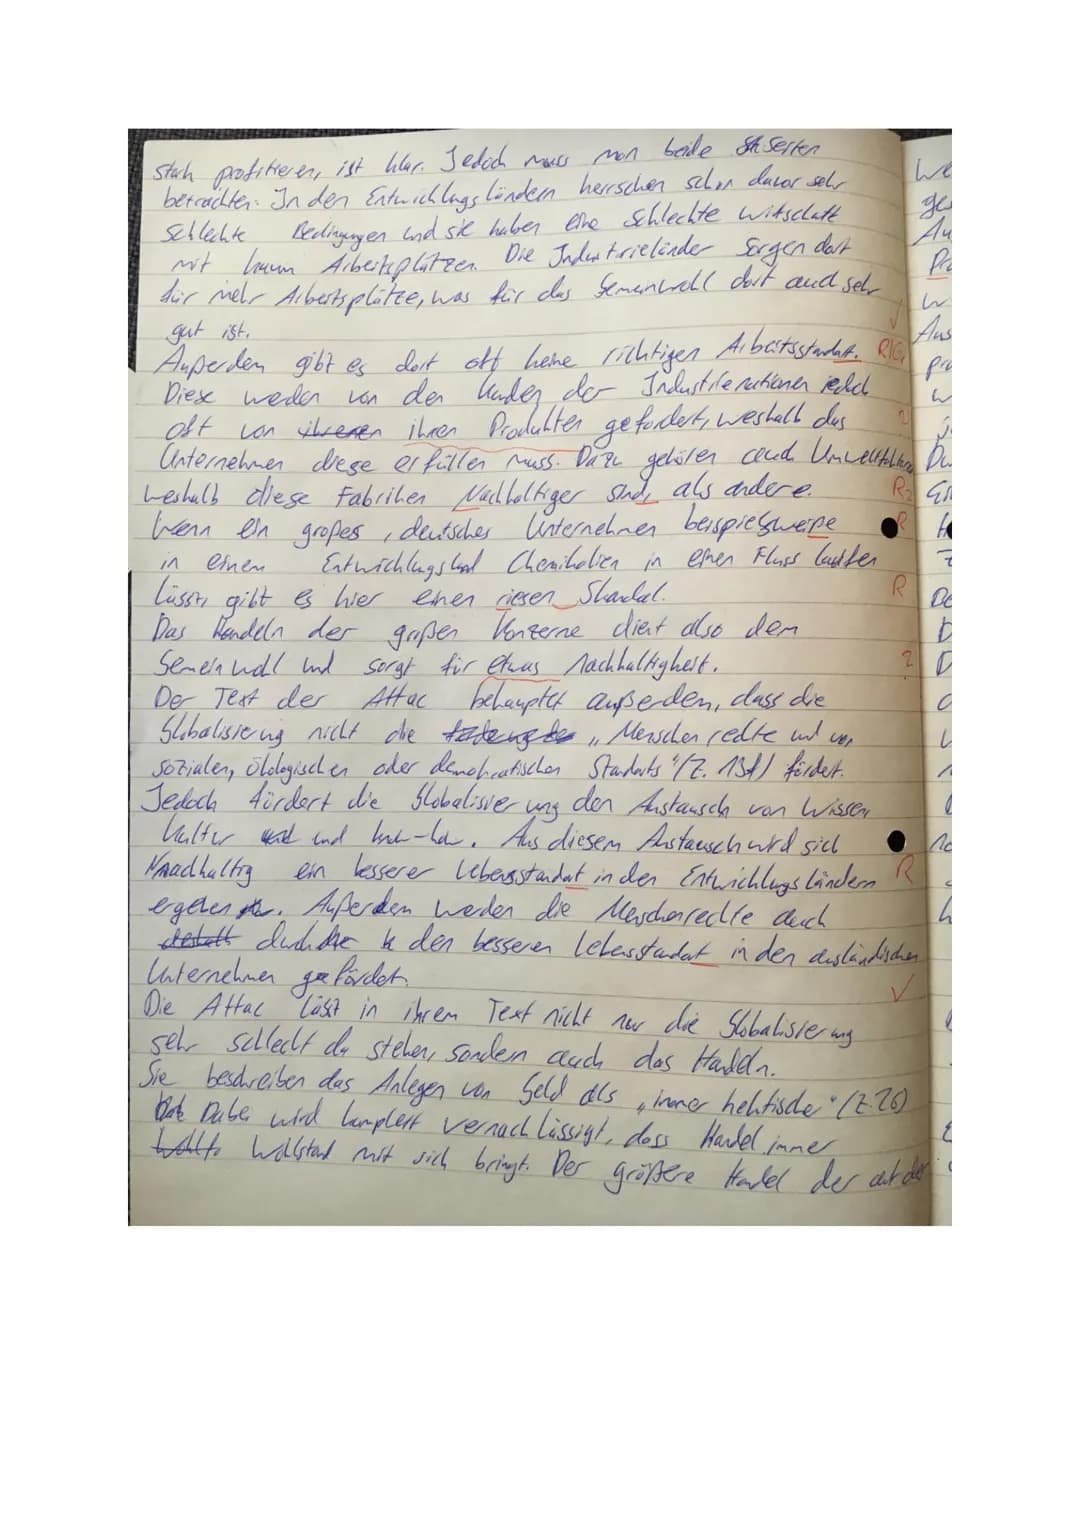 stark profitieren, ist klar. Jedoch muss man beide Seiten
betrachten. In den Entwicklungsländern herrschen schon davor sehr
schlechte Bedingungen und sie haben eine schlechte Wirtschaft
mit kaum Arbeitsplätzen. Die Industrieländer sorgen dort
für mehr Arbeitsplätze, was für das Gemeinwohl dort auch sehr
gut ist.
Außerdem gibt es dort oft keine richtigen Arbeitsstandart. R/Gr
Diese werden von den Kunden der Industrienationen jedoch
oft von ihren Produkten gefordert, weshalb das
Unternehmen diese erfüllen muss. Dazu gehören auch Umweltfaktoren
weshalb diese Fabriken Nachhaltiger sind, als andere. R
Wenn ein großes, deutsches Unternehmen beispielsweiße R
in einem Entwicklungsland Chemikalien in einen Fluss laufen
lässt, gibt es hier einen riesen Skandal. R
Das Handeln der großen Konzerne dient also dem
Gemeinwohl und sorgt für etwas Nachhaltigkeit. ?
Der Text der Attac behauptet außerdem, dass die
Globalisierung nicht die „Menschenrechte und von
sozialen, ökologischen oder demokratischen Standarts" (Z. 13f) fördert.
Jedoch fördert die Globalisierung den Austausch von Wissen,
Kultur und know-how. Aus diesem Austausch wird sich
Nachhaltig ein besserer Lebensstandart in den Entwicklungsländern R
ergeben. Außerdem werden die Menschenrechte auch
durch den besseren Lebensstandart in den ausländischen
Unternehmen gefördert.
Die Attac lässt in ihrem Text nicht nur die Globalisierung
sehr schlecht da stehen, sondern auch das Handeln.
Sie beschreiben das Anlegen von Geld als „immer hektischer" (Z.26)
Dabei wird komplett vernachlässigt, dass Handel immer
Wohlstand mit sich bringt. Der größere Handel der auf der